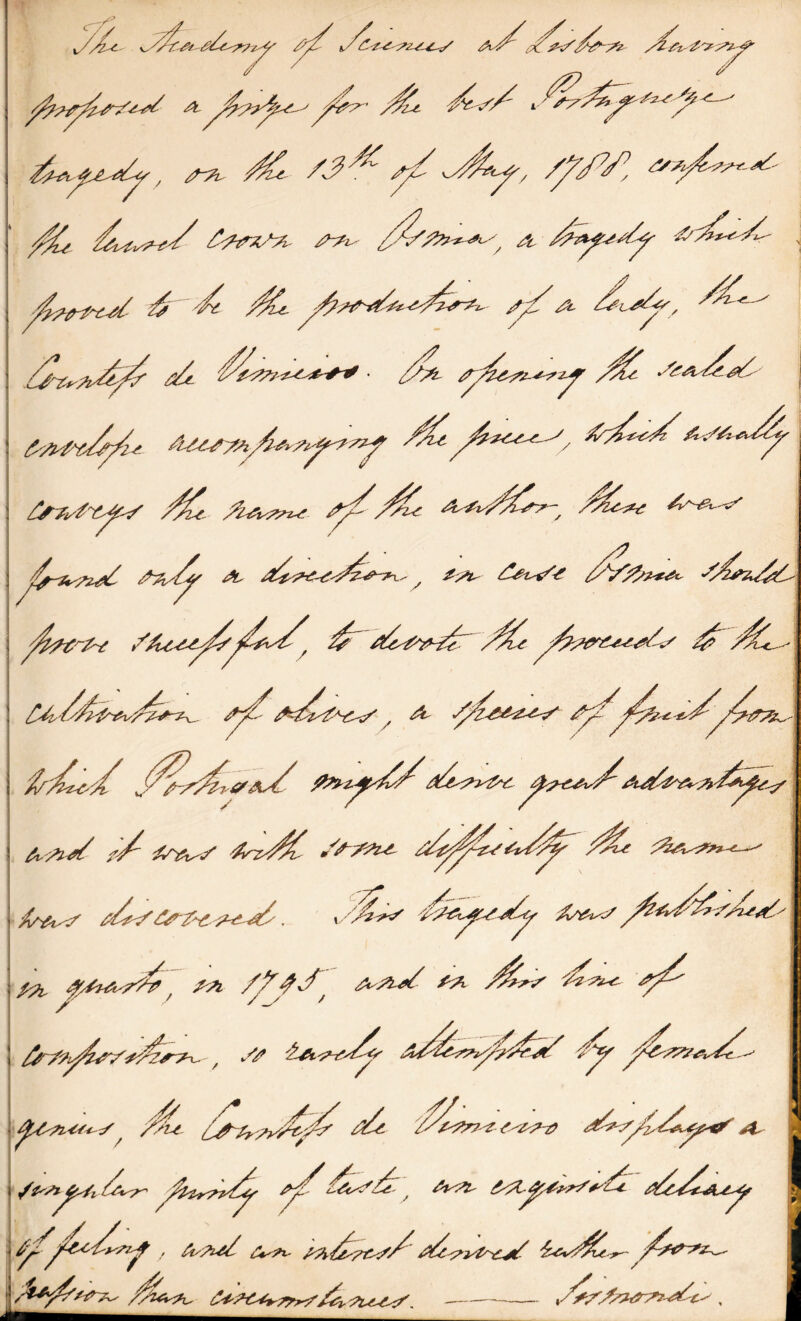 The Academy of Sciences at Lisbon having
proposed a prize for the best Portugueze
tragedy, on the 13th of May, 1788, conferred
the laurel crown on Osmia, a tragedy which
proved to be the production of a lady, the
Countess de Vimieiro. On opening the sealed
envelope accompanying the piece, which usually
conveys the name of the author, there was
found only a direction, in case Osmia should
prove successful, to devote the proceeds to the
cultivation of olives, a species of fruit from
which Portugal might derive great advantages
and it was with some difficulty the name
was discovered. This tragedy was published
in quarto, in 1795, and in this line of
composition, so rarely attempted by female
genius, the Countess de Vimieiro displays a
singular purity of taste, an exquisite deliacy
of feeling, and an interest derived rather from
passion than circumstances. —— Sismondi.